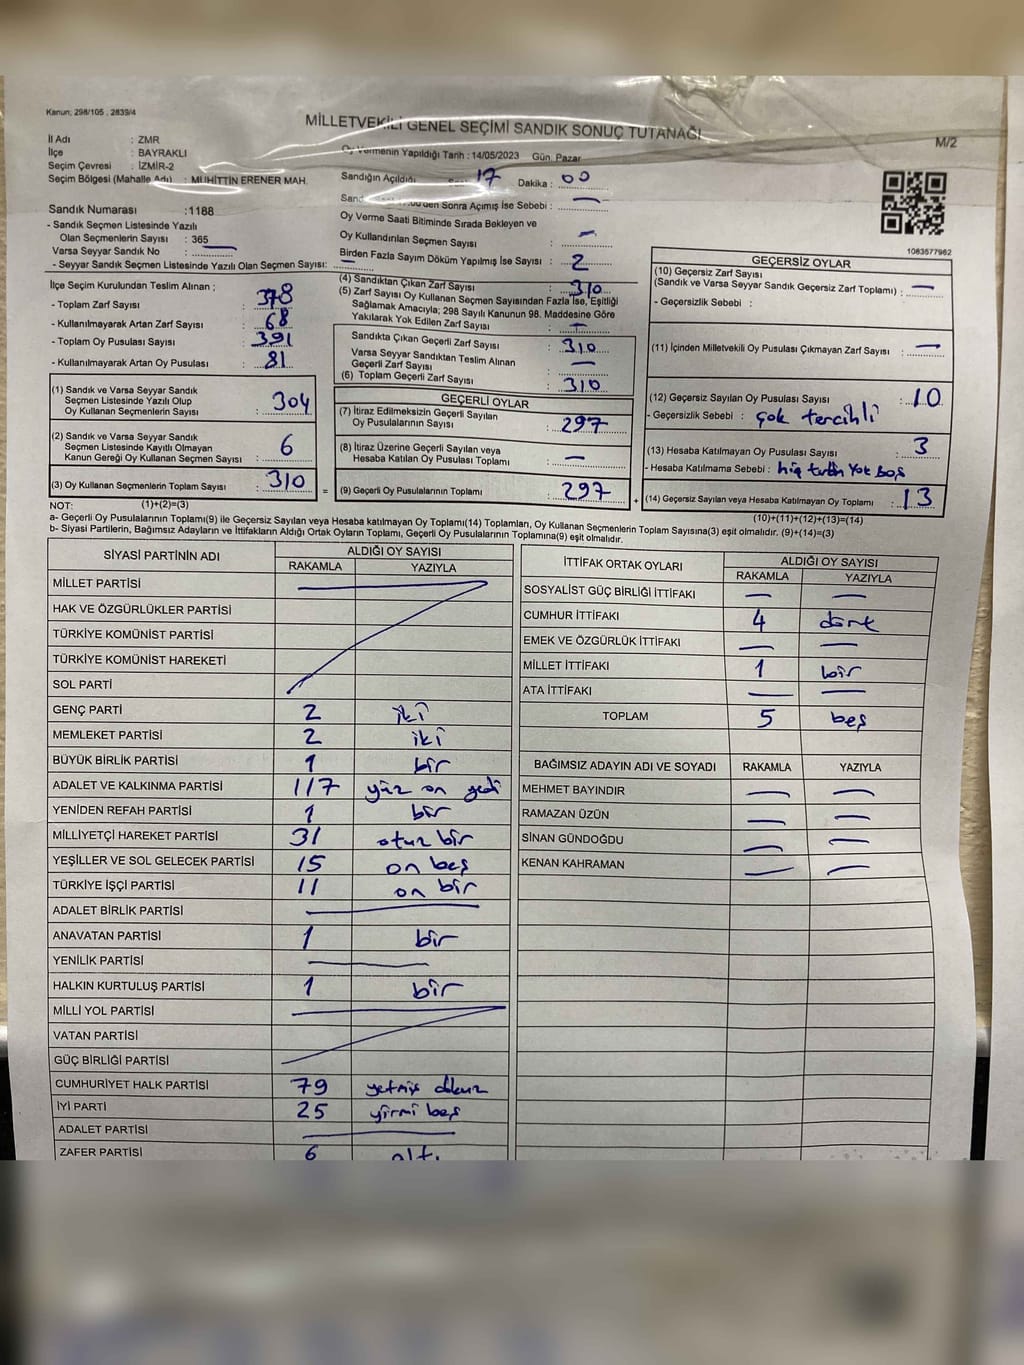 Kanun; 298/105 , 2839/4
MİLLETVEKİLİ GENEL SEÇİMİ SANDIK SONUÇ TUTANAĞI
M/2
İl Adı : ZMR
İlçe : BAYRAKLI
Seçim Çevresi : İZMİR-2
Seçim Bölgesi (Mahalle Adı) : MUHİTTİN ERENER MAH.
Sandık Numarası :1188
- Sandık Seçmen Listesinde Yazılı
Olan Seçmenlerin Sayısı : 365
Varsa Seyyar Sandık No : —
- Seyyar Sandık Seçmen Listesinde Yazılı Olan Seçmen Sayısı: —
Oy Vermenin Yapıldığı Tarih : 14/05/2023 Gün. Pazar
Sandığın Açıldığı 17 Dakika : 00
Sonra Açımış İse Sebebi : —
Oy Verme Saati Bitiminde Sırada Bekleyen ve
Oy Kullandırılan Seçmen Sayısı : —
Birden Fazla Sayım Döküm Yapılmış İse Sayısı : 2
1083577962
İlçe Seçim Kurulundan Teslim Alınan ;
- Toplam Zarf Sayısı : 378
- Kullanılmayarak Artan Zarf Sayısı : 68
- Toplam Oy Pusulası Sayısı : 391
- Kullanılmayarak Artan Oy Pusulası : 81
(1) Sandık ve Varsa Seyyar Sandık
Seçmen Listesinde Yazılı Olup
Oy Kullanan Seçmenlerin Sayısı : 304
(2) Sandık ve Varsa Seyyar Sandık
Seçmen Listesinde Kayıtlı Olmayan
Kanun Gereği Oy Kullanan Seçmen Sayısı : 6
(3) Oy Kullanan Seçmenlerin Toplam Sayısı : 310
(1)+(2)=(3)
(4) Sandıktan Çıkan Zarf Sayısı : 310
(5) Zarf Sayısı Oy Kullanan Seçmen Sayısından Fazla İse, Eşitliği
Sağlamak Amacıyla; 298 Sayılı Kanunun 98. Maddesine Göre
Yakılarak Yok Edilen Zarf Sayısı : —
Sandıkta Çıkan Geçerli Zarf Sayısı : 310
Varsa Seyyar Sandıktan Teslim Alınan
Geçerli Zarf Sayısı : —
(6) Toplam Geçerli Zarf Sayısı : 310
GEÇERLİ OYLAR
(7) İtiraz Edilmeksizin Geçerli Sayılan
Oy Pusulalarının Sayısı : 297
(8) İtiraz Üzerine Geçerli Sayılan veya
Hesaba Katılan Oy Pusulası Toplamı : —
= (9) Geçerli Oy Pusulalarının Toplamı : 297 +
GEÇERSİZ OYLAR
(10) Geçersiz Zarf Sayısı
(Sandık ve Varsa Seyyar Sandık Geçersiz Zarf Toplamı) : —
- Geçersizlik Sebebi :
(11) İçinden Milletvekili Oy Pusulası Çıkmayan Zarf Sayısı : —
(12) Geçersiz Sayılan Oy Pusulası Sayısı : 10
- Geçersizlik Sebebi : çok tercihli
(13) Hesaba Katılmayan Oy Pusulası Sayısı : 3
- Hesaba Katılmama Sebebi : hiç Yok boş
(14) Geçersiz Sayılan veya Hesaba Katılmayan Oy Toplamı : 13
(10)+(11)+(12)+(13)=(14)
NOT:
a- Geçerli Oy Pusulalarının Toplamı(9) ile Geçersiz Sayılan veya Hesaba katılmayan Oy Toplamı(14) Toplamları, Oy Kullanan Seçmenlerin Toplam Sayısına(3) eşit olmalıdır. (9)+(14)=(3)
b- Siyasi Partilerin, Bağımsız Adayların ve İttifakların Aldığı Ortak Oyların Toplamı, Geçerli Oy Pusulalarının Toplamına(9) eşit olmalıdır.
SİYASİ PARTİNİN ADI ALDIĞI OY SAYISI
RAKAMLA YAZIYLA
MİLLET PARTİSİ
HAK VE ÖZGÜRLÜKLER PARTİSİ
TÜRKİYE KOMÜNİST PARTİSİ
TÜRKİYE KOMÜNİST HAREKETİ
SOL PARTİ
GENÇ PARTİ 2 iki
MEMLEKET PARTİSİ 2 iki
BÜYÜK BİRLİK PARTİSİ 1 bir
ADALET VE KALKINMA PARTİSİ 117 yüz on yedi
YENİDEN REFAH PARTİSİ 1 bir
MİLLİYETÇİ HAREKET PARTİSİ 31 otuz bir
YEŞİLLER VE SOL GELECEK PARTİSİ 15 on beş
TÜRKİYE İŞÇİ PARTİSİ 11 on bir
ADALET BİRLİK PARTİSİ —
ANAVATAN PARTİSİ 1 bir
YENİLİK PARTİSİ —
HALKIN KURTULUŞ PARTİSİ 1 bir
MİLLİ YOL PARTİSİ
VATAN PARTİSİ
GÜÇ BİRLİĞİ PARTİSİ
CUMHURİYET HALK PARTİSİ 79 yetmiş dokuz
İYİ PARTİ 25 yirmi beş
ADALET PARTİSİ —
ZAFER PARTİSİ 6 altı
İTTİFAK ORTAK OYLARI ALDIĞI OY SAYISI
RAKAMLA YAZIYLA
SOSYALİST GÜÇ BİRLİĞİ İTTİFAKI — —
CUMHUR İTTİFAKI 4 dört
EMEK VE ÖZGÜRLÜK İTTİFAKI — —
MİLLET İTTİFAKI 1 bir
ATA İTTİFAKI — —
TOPLAM 5 beş
BAĞIMSIZ ADAYIN ADI VE SOYADI RAKAMLA YAZIYLA
MEHMET BAYINDIR — —
RAMAZAN ÜZÜN — —
SİNAN GÜNDOĞDU — —
KENAN KAHRAMAN — —